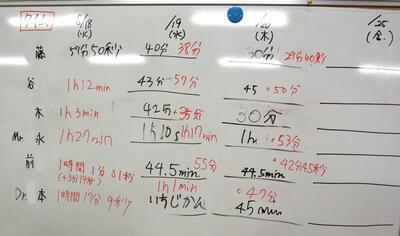 タイム 6/18 /19 /20 /25
(火) (水) (木) (金.)
藤 59分50秒 40分 38分 30分 29分40秒
谷 1h12min 43分 57分 45 50分
木 1h3min 42分 35分 50分
Mr. 永 1h27min 1h10s 1h17min 1h 53分
前 1時間 1分 31秒 44.5min 55分 44.5min 42分45秒
(+3分19秒) 1h1min
Dr. 本 1時間17分9秒 いちじかん 47分
45min